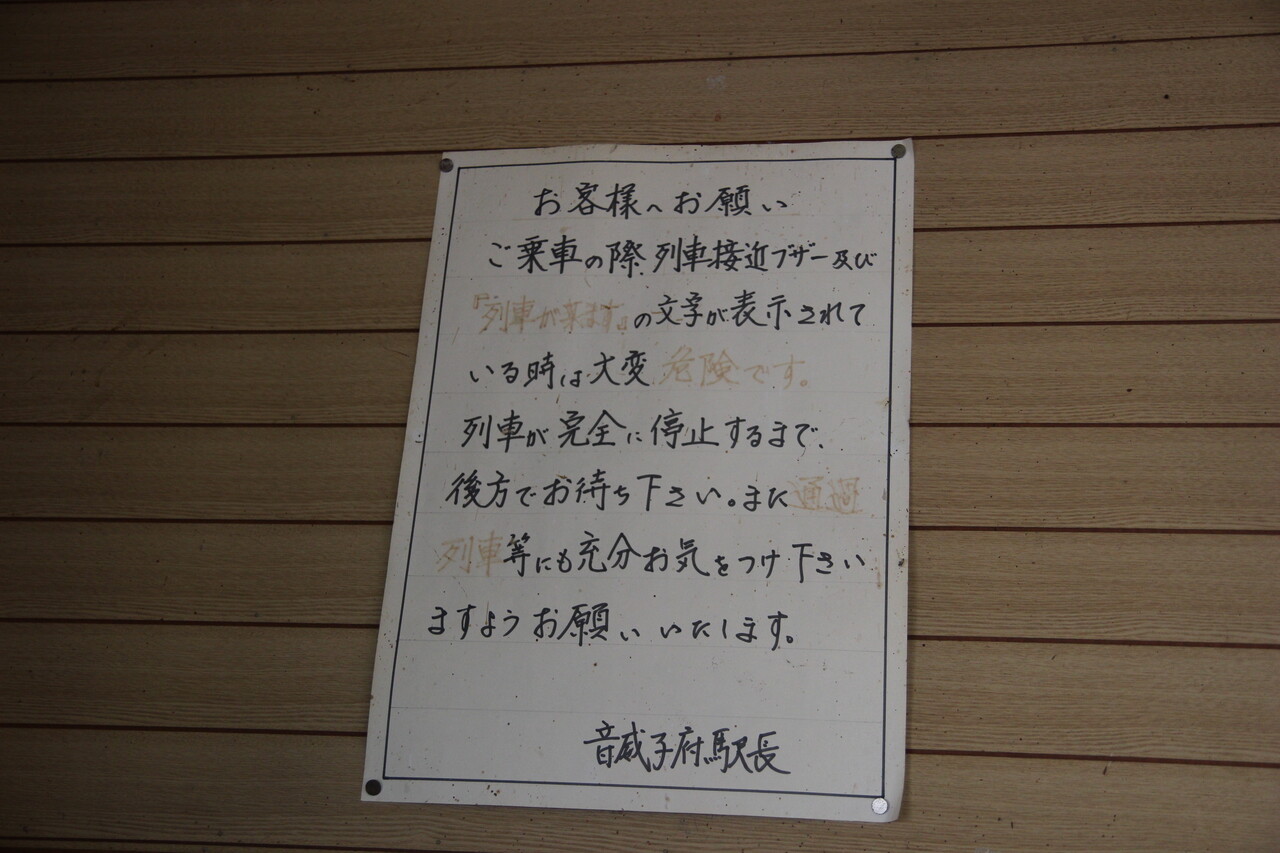 お客様へお願い
ご乗車の際列車接近ブザー及び
『列車が来ます』の文字が表示されて
いる時は大変危険です。
列車が完全に停止するまで、
後方でお待ち下さい。また通過
列車等にも充分お気をつけ下さい
ますようお願いいたします。
音威子府駅長